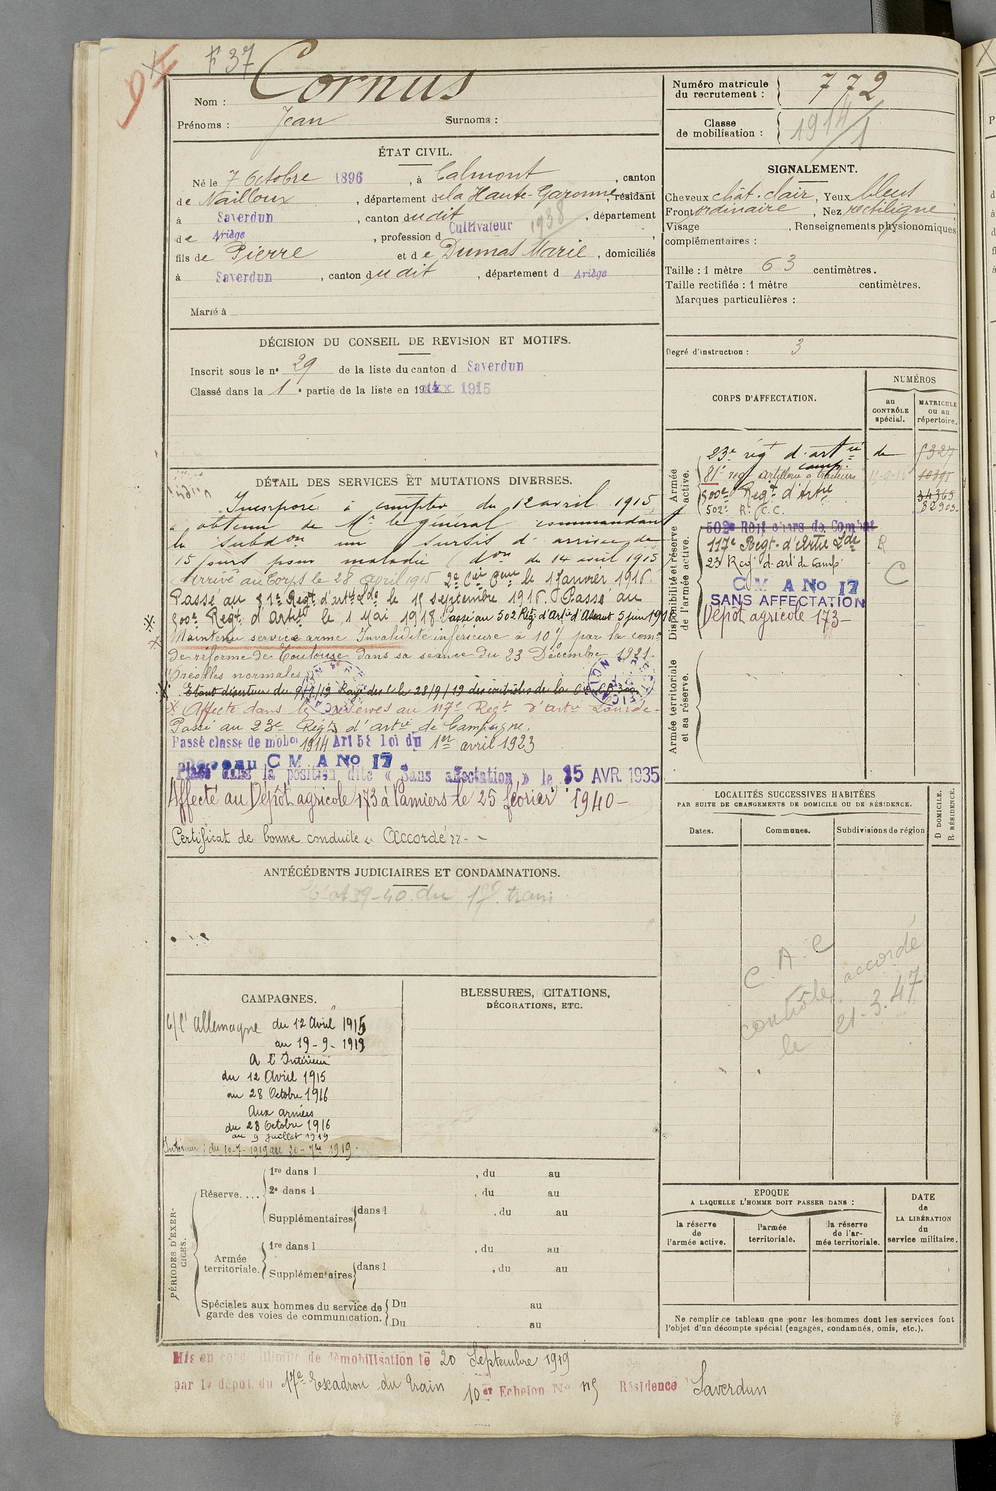 F 37
Nom : Cornus
Prénoms : Jean Surnoms :
ÉTAT CIVIL.
Né le 7 Octobre 1896, à Calmont, canton
de Nailloux, département de la Haute-Garonne, résidant
à Saverdun, canton dudit, département
de Ariège, profession d Cultivateur 1938
fils de Pierre et de Dumas Marie, domiciliés
à Saverdun, canton dudit, département d Ariège
Marié à
DÉCISION DU CONSEIL DE REVISION ET MOTIFS.
Inscrit sous le n° 29 de la liste du canton d Saverdun
Classé dans la 1e partie de la liste en 1915
DÉTAIL DES SERVICES ET MUTATIONS DIVERSES.
Incorporé à compter du 12 avril 1915
a obtenu de Mr le général commandant
la subdon un sursis d'arrivée de
15 jours pour maladie (don du 14 avril 1915
Arrivé au Corps le 28 avril 1915 2e Cer Cuer le 1 Janvier 1916
Passé au 81e Regt d'artie Lde le 1er septembre 1916. Passé au
500e Regt d'Artie le 1 Mai 1918 Passé au 502 Rgt d'Artie d'Assaut 5 juin 1918
Maintenu service armé Invalidité inférieure à 10% par la comon
de réforme de Toulouse dans sa séance du 23 Décembre 1921.
Oreilles normales
X Affecté dans les réserves au 117e Regt d'artie Lourde
Passé au 23e Regt d'artie de Campagne.
Passé classe de mobon 1914 Art 58 loi du 1er avril 1923
CM A No 17
Placé dans la position dite « Sans affectation » le 15 AVR. 1935
Affecté au Dépôt agricole 173 à Pamiers le 25 février 1940 –
Certificat de bonne conduite « Accordé »
ANTÉCÉDENTS JUDICIAIRES ET CONDAMNATIONS.
39-40 du train
CAMPAGNES.
c/ l'Allemagne du 12 Avril 1915
au 19-9-1919
A l'Intérieur
du 12 Avril 1915
au 28 Octobre 1916
Aux armées
du 28 Octobre 1916
au 9 juillet 1919
Intérieur : du 10-7-1919 au 20-7bre 1919
BLESSURES, CITATIONS,
DÉCORATIONS, ETC.
PÉRIODES D'EXERCICES.
Réserve....
1re dans l , du au
2e dans l , du au
Supplémentaires dans l , du au
Armée territoriale.
1re dans l , du au
Supplémentaires dans l , du au
Spéciales aux hommes du service de
garde des voies de communication.
Du au
Du au
Mis en congé illimité de démobilisation le 20 Septembre 1919
par le dépôt du 17e Escadron du train 10e Echelon No 115 Résidence Saverdun
Numéro matricule
du recrutement : 772
Classe
de mobilisation : 1914/1
SIGNALEMENT.
Cheveux chât. clair, Yeux bleus
Front ordinaire, Nez rectiligne
Visage , Renseignements physionomiques
complémentaires :
Taille : 1 mètre 63 centimètres.
Taille rectifiée : 1 mètre centimètres.
Marques particulières :
Degré d'instruction : 3
CORPS D'AFFECTATION.
NUMÉROS
au
CONTRÔLE
spécial.
MATRICULE
ou au
répertoire.
Armée active.
23e régt d'artie de camp.
81e rég artillerie à tracteurs
500e Regt d'Artie 34365
502e R. C. C. 32303
Disponibilité et réserve
de l'armée active.
502e Regt chars de Combat
117e Regt d'Artie Lde R
23 Reg d'art de Camp. C
CM A No 17
SANS AFFECTATION
Dépôt agricole 173 –
Armée territoriale
et sa réserve.
LOCALITÉS SUCCESSIVES HABITÉES
PAR SUITE DE CHANGEMENTS DE DOMICILE OU DE RÉSIDENCE.
Dates.
Communes.
Subdivisions de région
D. DOMICILE.
R. RÉSIDENCE.
C. A. C accordé
contrôle
le 21.3.47
EPOQUE
A LAQUELLE L'HOMME DOIT PASSER DANS :
la réserve
de
l'armée active.
l'armée
territoriale.
la réserve
de l'ar-
mée territoriale.
DATE
de
LA LIBÉRATION
du
service militaire.
Ne remplir ce tableau que pour les hommes dont les services font
l'objet d'un décompte spécial (engagés, condamnés, omis, etc.).